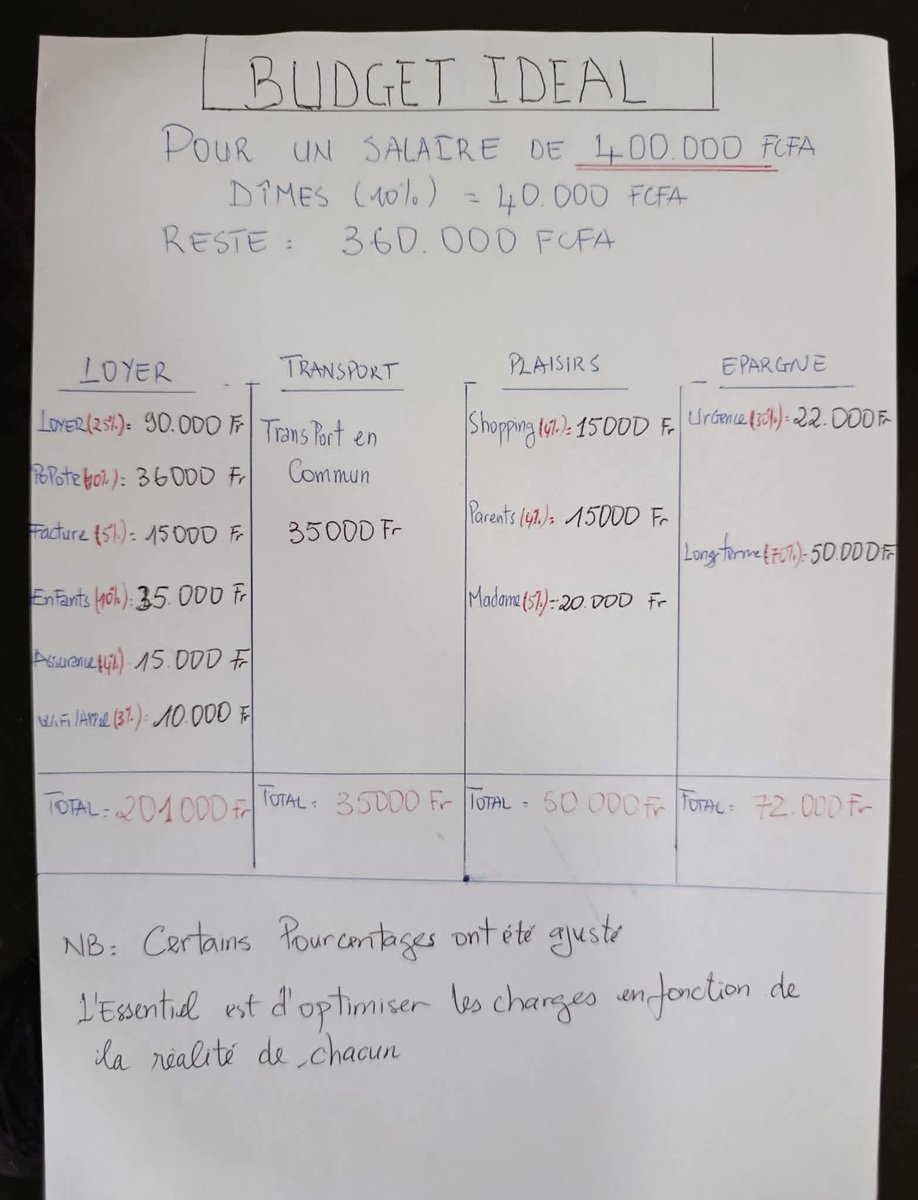 BUDGET IDEAL
POUR UN SALAIRE DE 400.000 FCFA
DÎMES (10%) = 40.000 FCFA
RESTE : 360.000 FCFA
LOYER
LOYER (25%) = 90.000 Fr
POPOTE (10%) : 36000 Fr
Facture (5%) = 15000 Fr
EnFants (10%) : 35.000 Fr
Assurance (4%) 15.000 Fr
Wi.Fi/APPel (3%) : 10.000 Fr
TOTAL = 201000 Fr
TRANSPORT
TransPort en
Commun
35000 Fr
TOTAL = 35000 Fr
PLAISIRS
Shopping (4%) = 15000 Fr
Parents (4%) = 15000 Fr
Madame (5%) = 20.000 Fr
TOTAL = 50.000 Fr
EPARGNE
Urgence (30%) = 22.000 Fr
Long terme (70%) = 50.000 Fr
TOTAL = 72.000 Fr
NB : Certains Pourcentages ont été ajusté
L'Essentiel est d'optimiser les charges en fonction de
la réalité de chacun